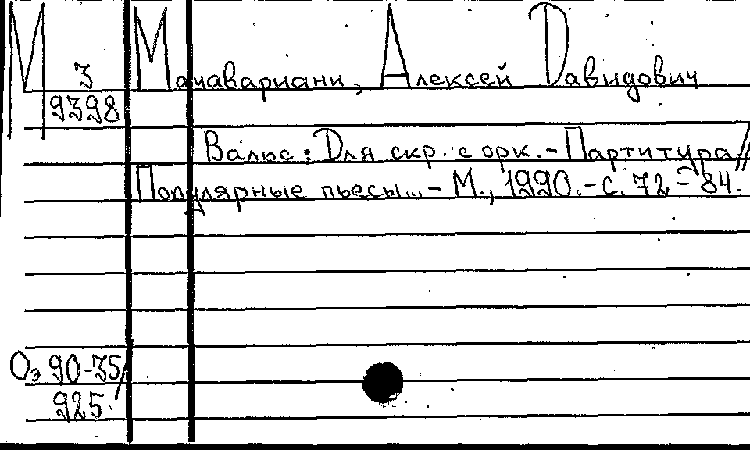 М З
9398
Мачавариани, Алексей Давидович
Вальс: Для скр. с орк. - Партитура //
Популярные пьесы... - М., 1990. - с. 72 - 84.
Оэ 90-35/
925.